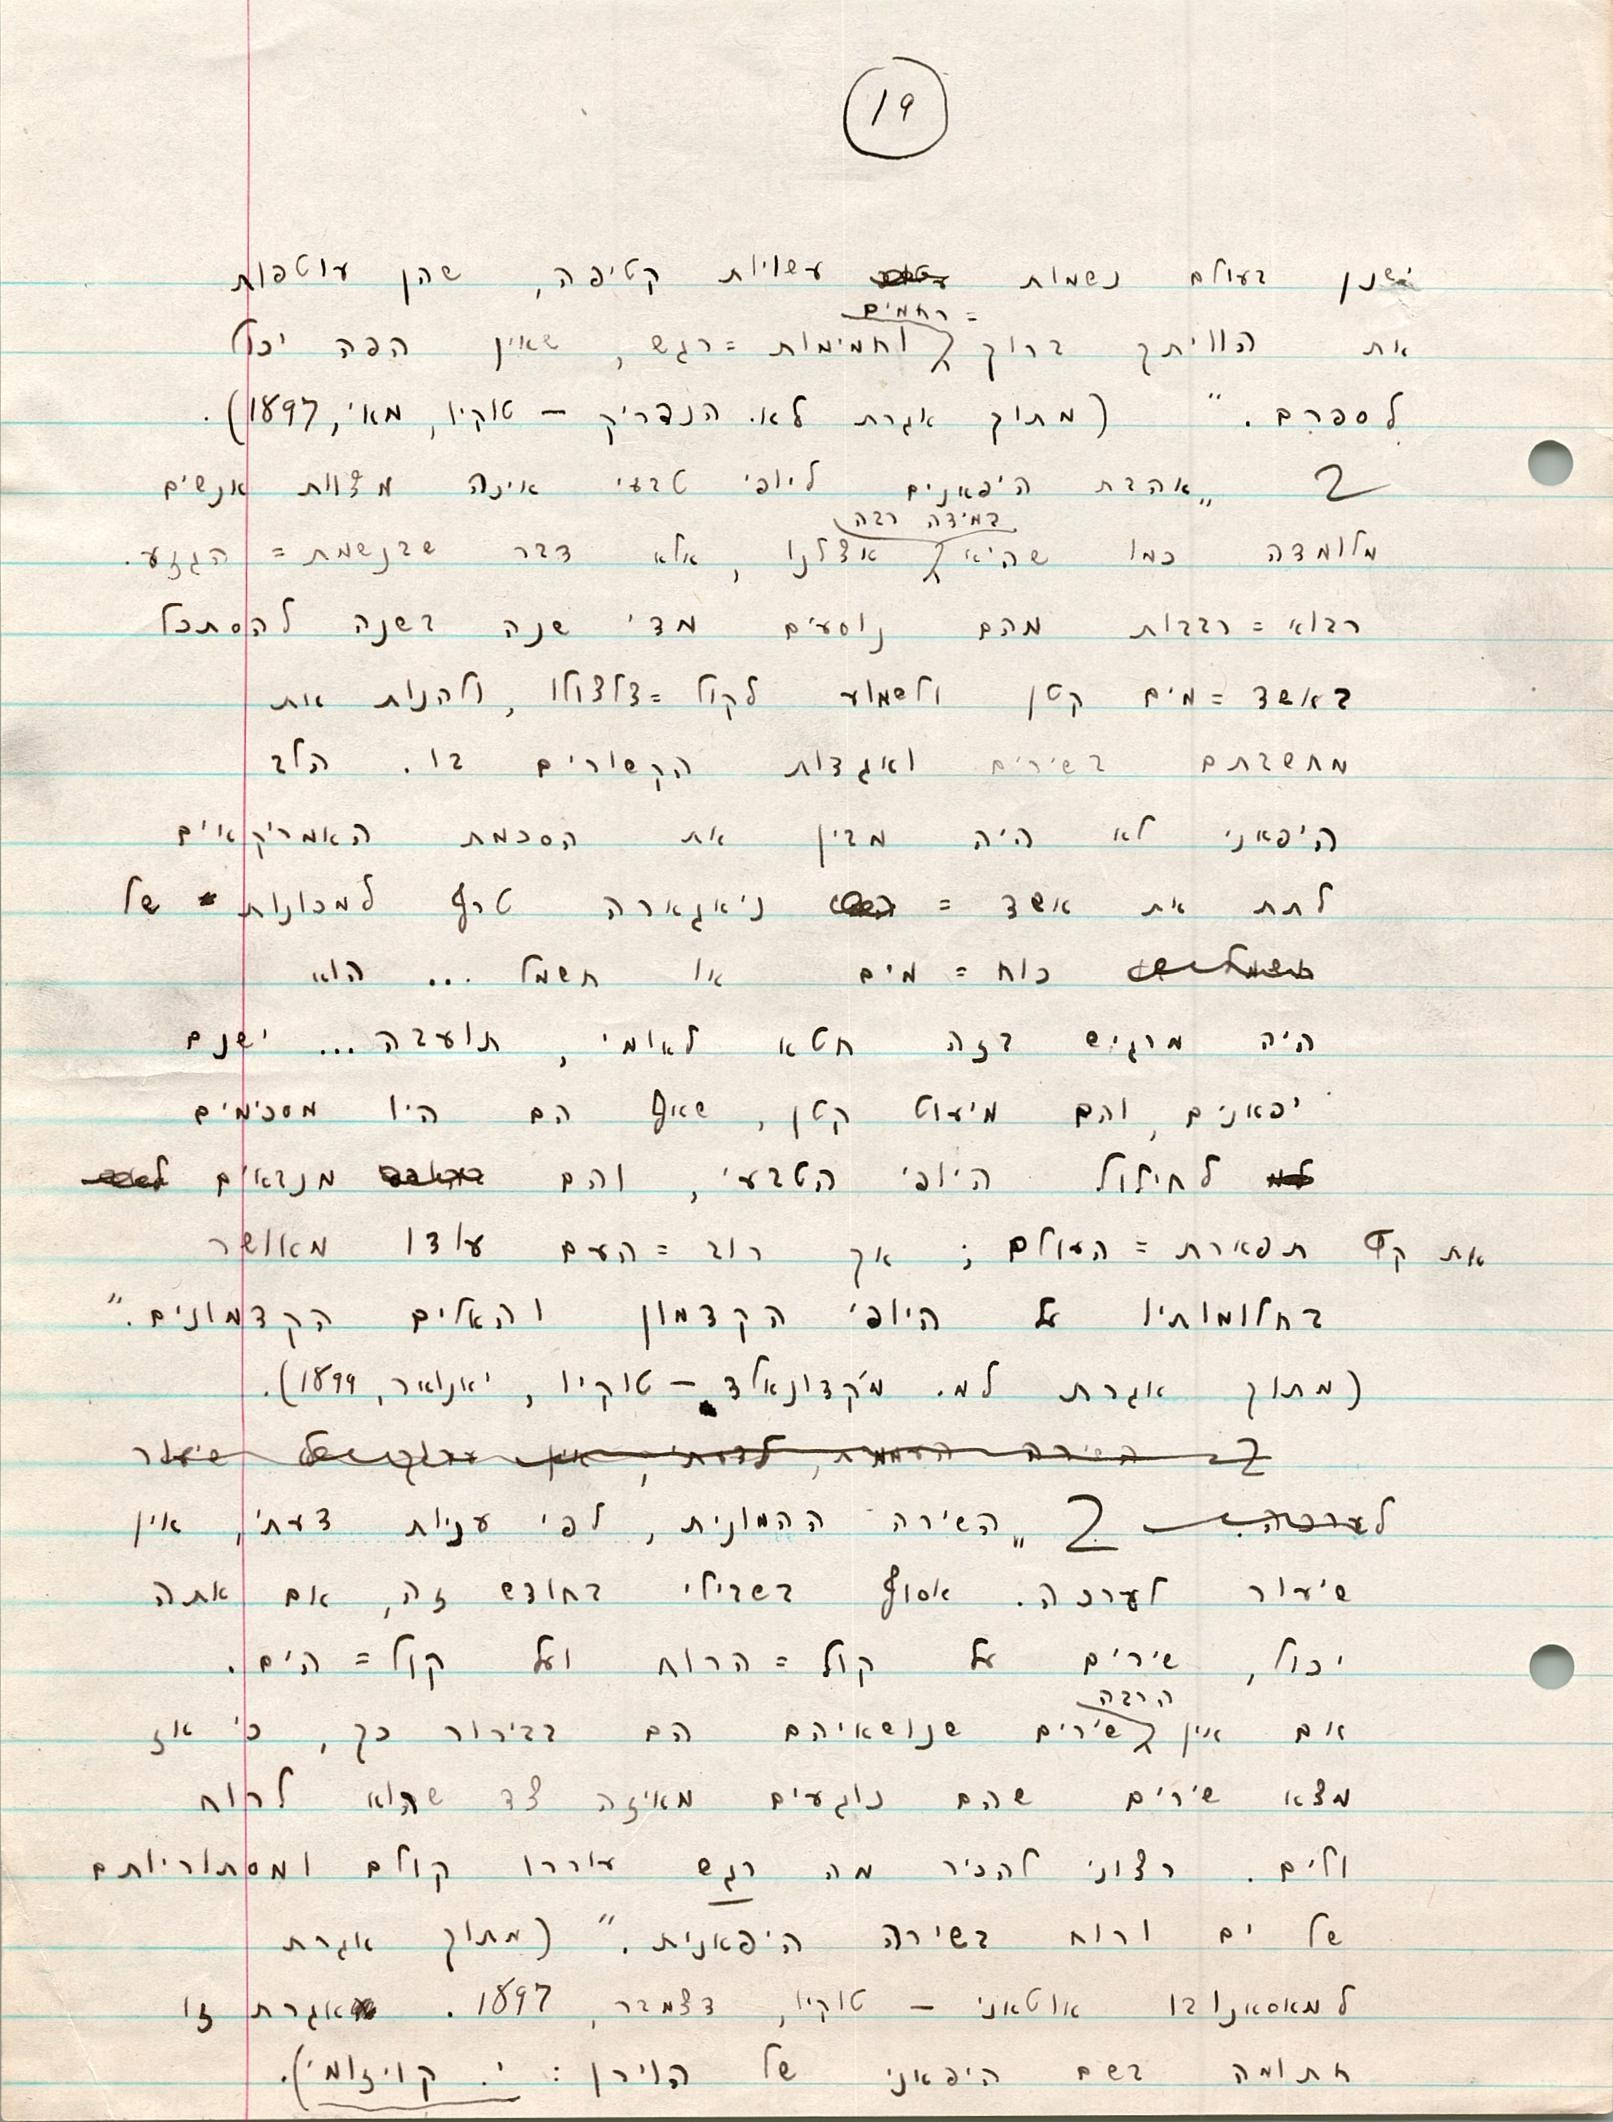 19
ישנן בעולם נשמות עשויות קטיפה, שהן עוטפות
= רחמים
את הוויתך ברוך וחמימות = רגש, שאין הפה יכול
לספרם." (מתוך אגרת לא. הנדריק – טוקיו, מאי, 1897).
„אהבת היפאנים ליופי טבעי אינה מצוות אנשים
במידה רבה
מלומדה כמו שהיא אצלנו, אלא דבר שבנשמת = הגזע.
רבוא = רבבות מהם נוסעים מדי שנה בשנה להסתכל
באשד = מים קטן ולשמוע לקול = צלצולו, ולהנות את
מחשבתם בשירים ואגדות הקשורים בו. הלב
היפאני לא היה מבין את הסכמת האמריקאים
לתת את אשד = ניאגארה טרף למכונות של
כוח = מים או חשמל ... הוא
היה מרגיש בזה חטא לאומי, תועבה... ישנם
יפאנים, והם מיעוט קטן, שאף הם היו מסכימים
לחילול היופי הטבעי, והם מנבאים
את קץ תפארת = העולם; אך רוב = העם עודו מאושר
בחלומותיו על היופי הקדמון והאלים הקדמונים."
(מתוך אגרת למ. מקדונאלד – טוקיו, יאנואר, 1899).
השירה העממית, לדעתי, אין ערוך של שיעור
לערכה. „השירה ההמונית, לפי עניות דעתי, אין
שיעור לערכה. אסוף בשבילי בחודש זה, אם אתה
יכול, שירים על קול = הרוח ועל קול = הים.
הרבה
אם אין שירים שנושאיהם הם בבירור כך, כי אז
מצא שירים שהם נוגעים מאיזה צד שהוא לרוח
ולים. רצוני להכיר מה רגש עוררו קולם ומסתוריותם
של ים ורוח בשירה היפאנית." (מתוך אגרת
למאסאנובו אוטאני – טוקיו, דצמבר, 1897. אגרת זו
חתומה בשם היפאני של הוירן: י. קויזומי).